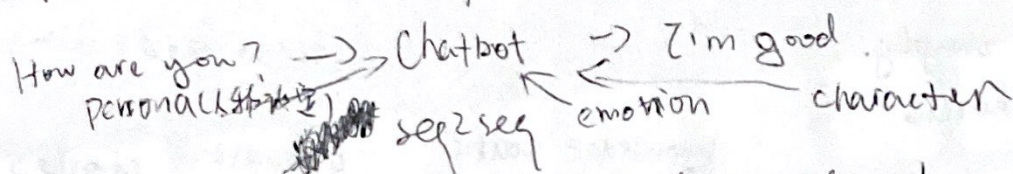 How are you? → Chatbot → I'm good
persona(人物设定)
seq2seq emotion character